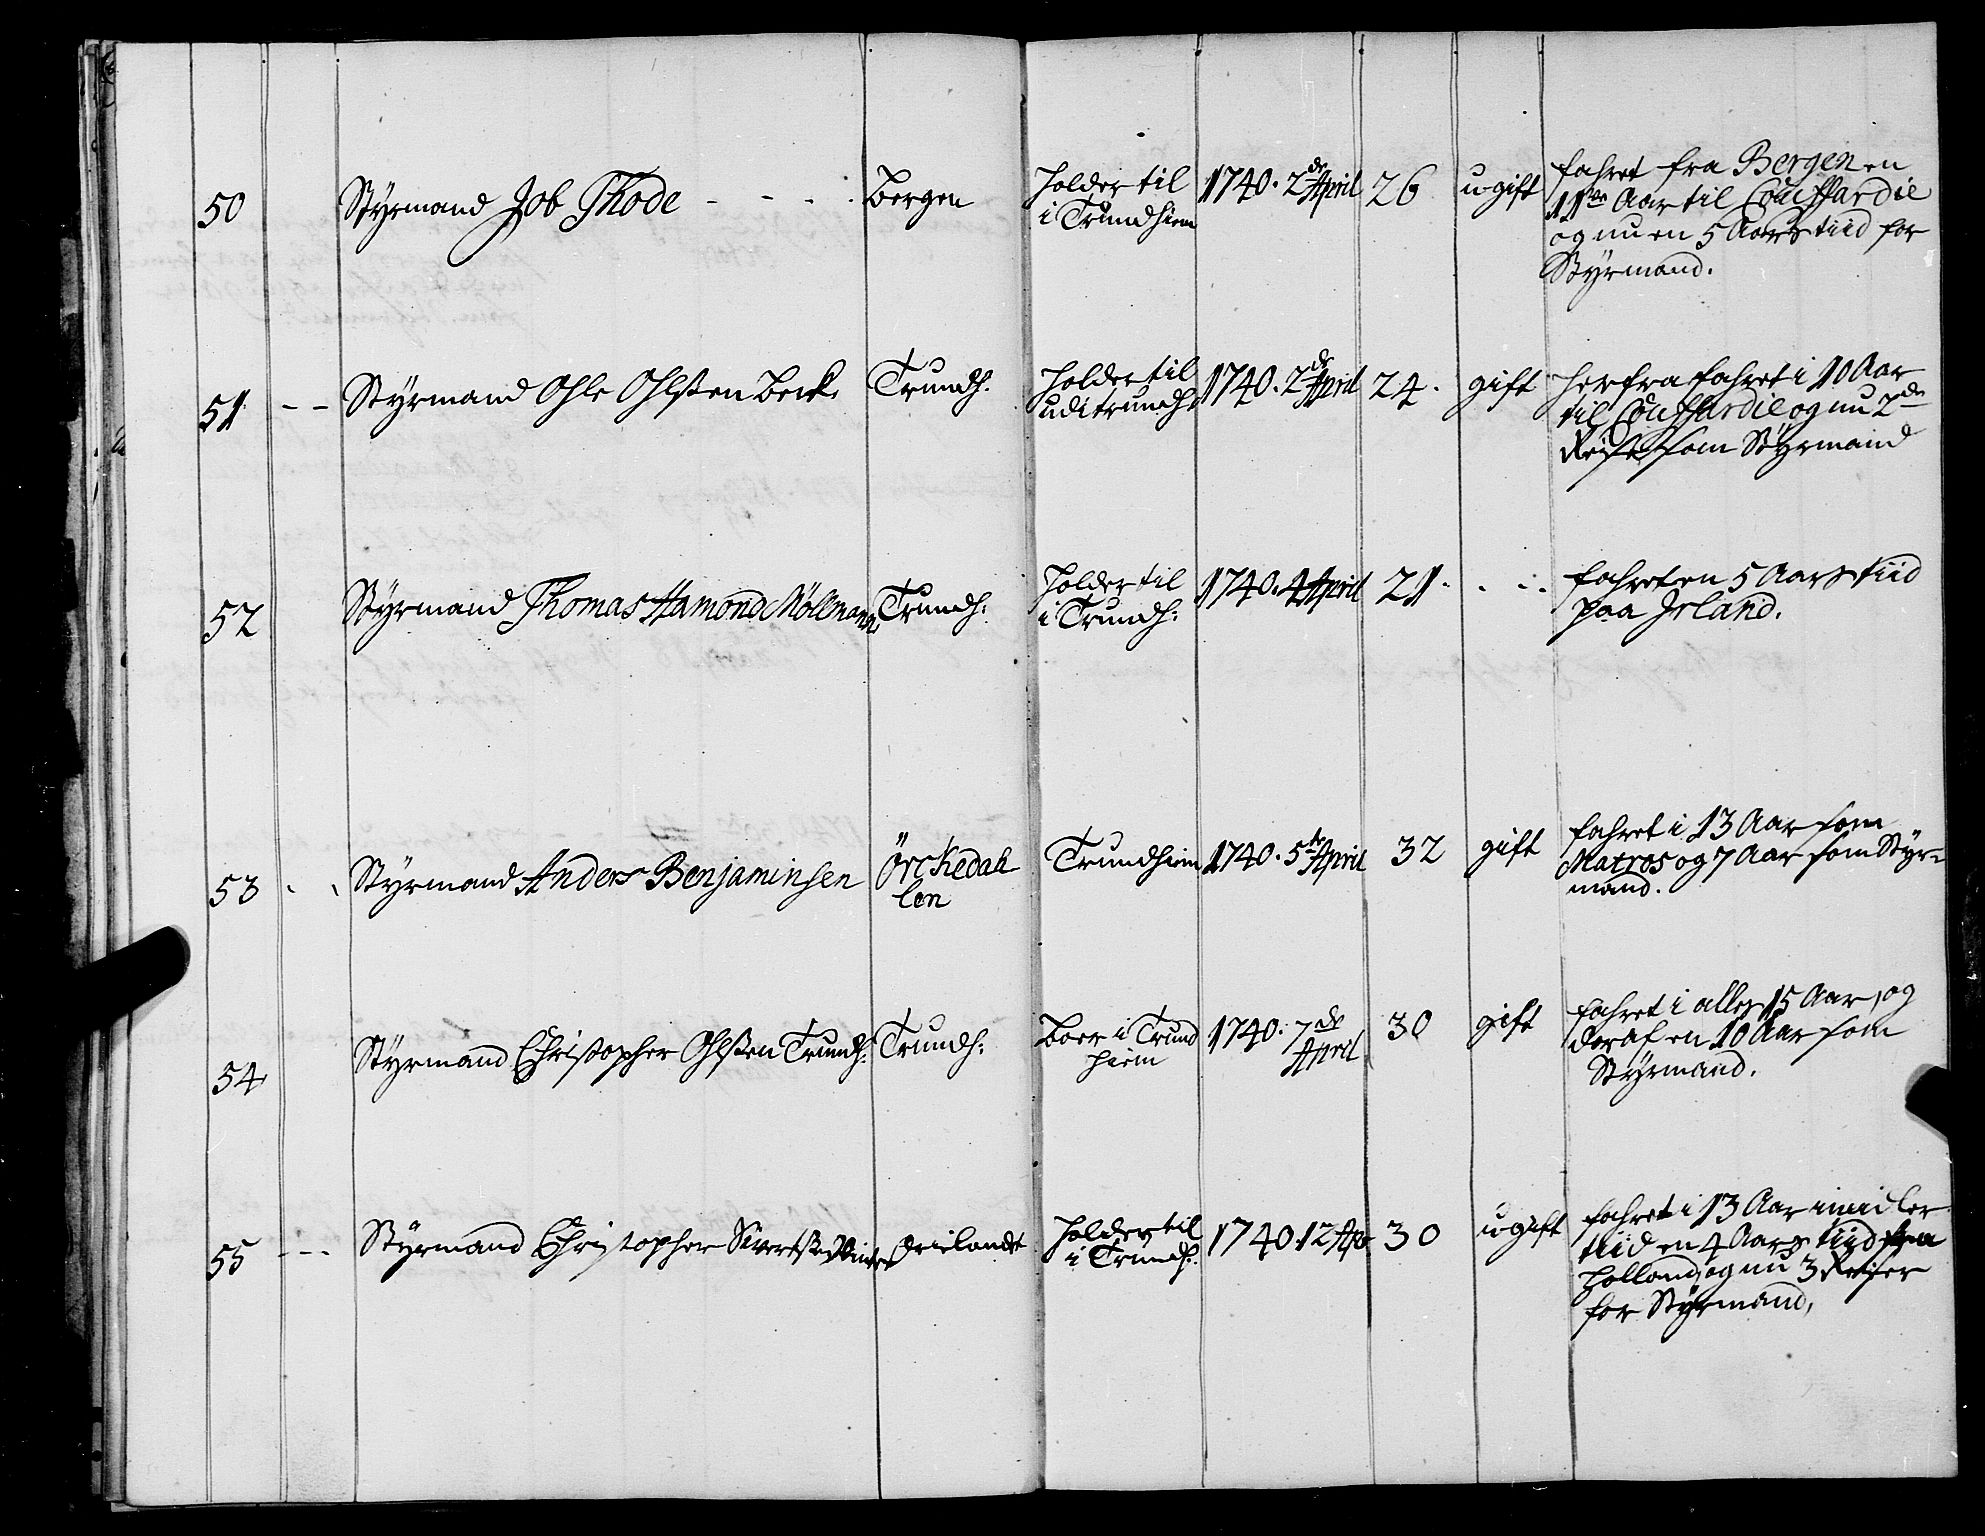 50 Styrmand Job Thode - - - . Bergen
holder til
i Trundhiem
1740. 2de April 26 ugift
fahret fra Bergen en
11ve Aar til Couffardie
og nu en 5 Aars tiid for
Styrmand.
51 - - Styrmand Ohle Ohlsten Beck. Trundh:
holder til
udi trundh:
1740. 2de April 24. gift
herfra fahret i 10 Aar
til Couffardie og nu 2de
Reise som Styrmand
52 Styrmand Thomas Hamond Möllmann Trundh:
holder til
i Trundh:
1740. 4 April 21. . . .
fahret en 5 Aars tiid
paa Jrland.
53 Styrmand Anders Benjaminsen
Örckedah
len
Trundhiem 1740. 5te April 32 gift
fahret i 13 Aar som
Matros og 7 Aar som Styr=
mand.
54 Styrmand Christopher Ohlsten Trundh: Trundh:
Boer i Trund
hiem
1740. 7de
April
30 gift
fahret i alles 15 Aar, og
deraf en 10 Aar som
Styrmand.
55 - - - Styrmand Christopher Sivertsen Winter Ørelandet
holder til
i Trundh:
1740. 12 Apr 30 ugift
fahret i 13 Aar imidler
tiid en 4 Aars tiid fra
Holland, og nu 3 Reiser
for Styrmand,